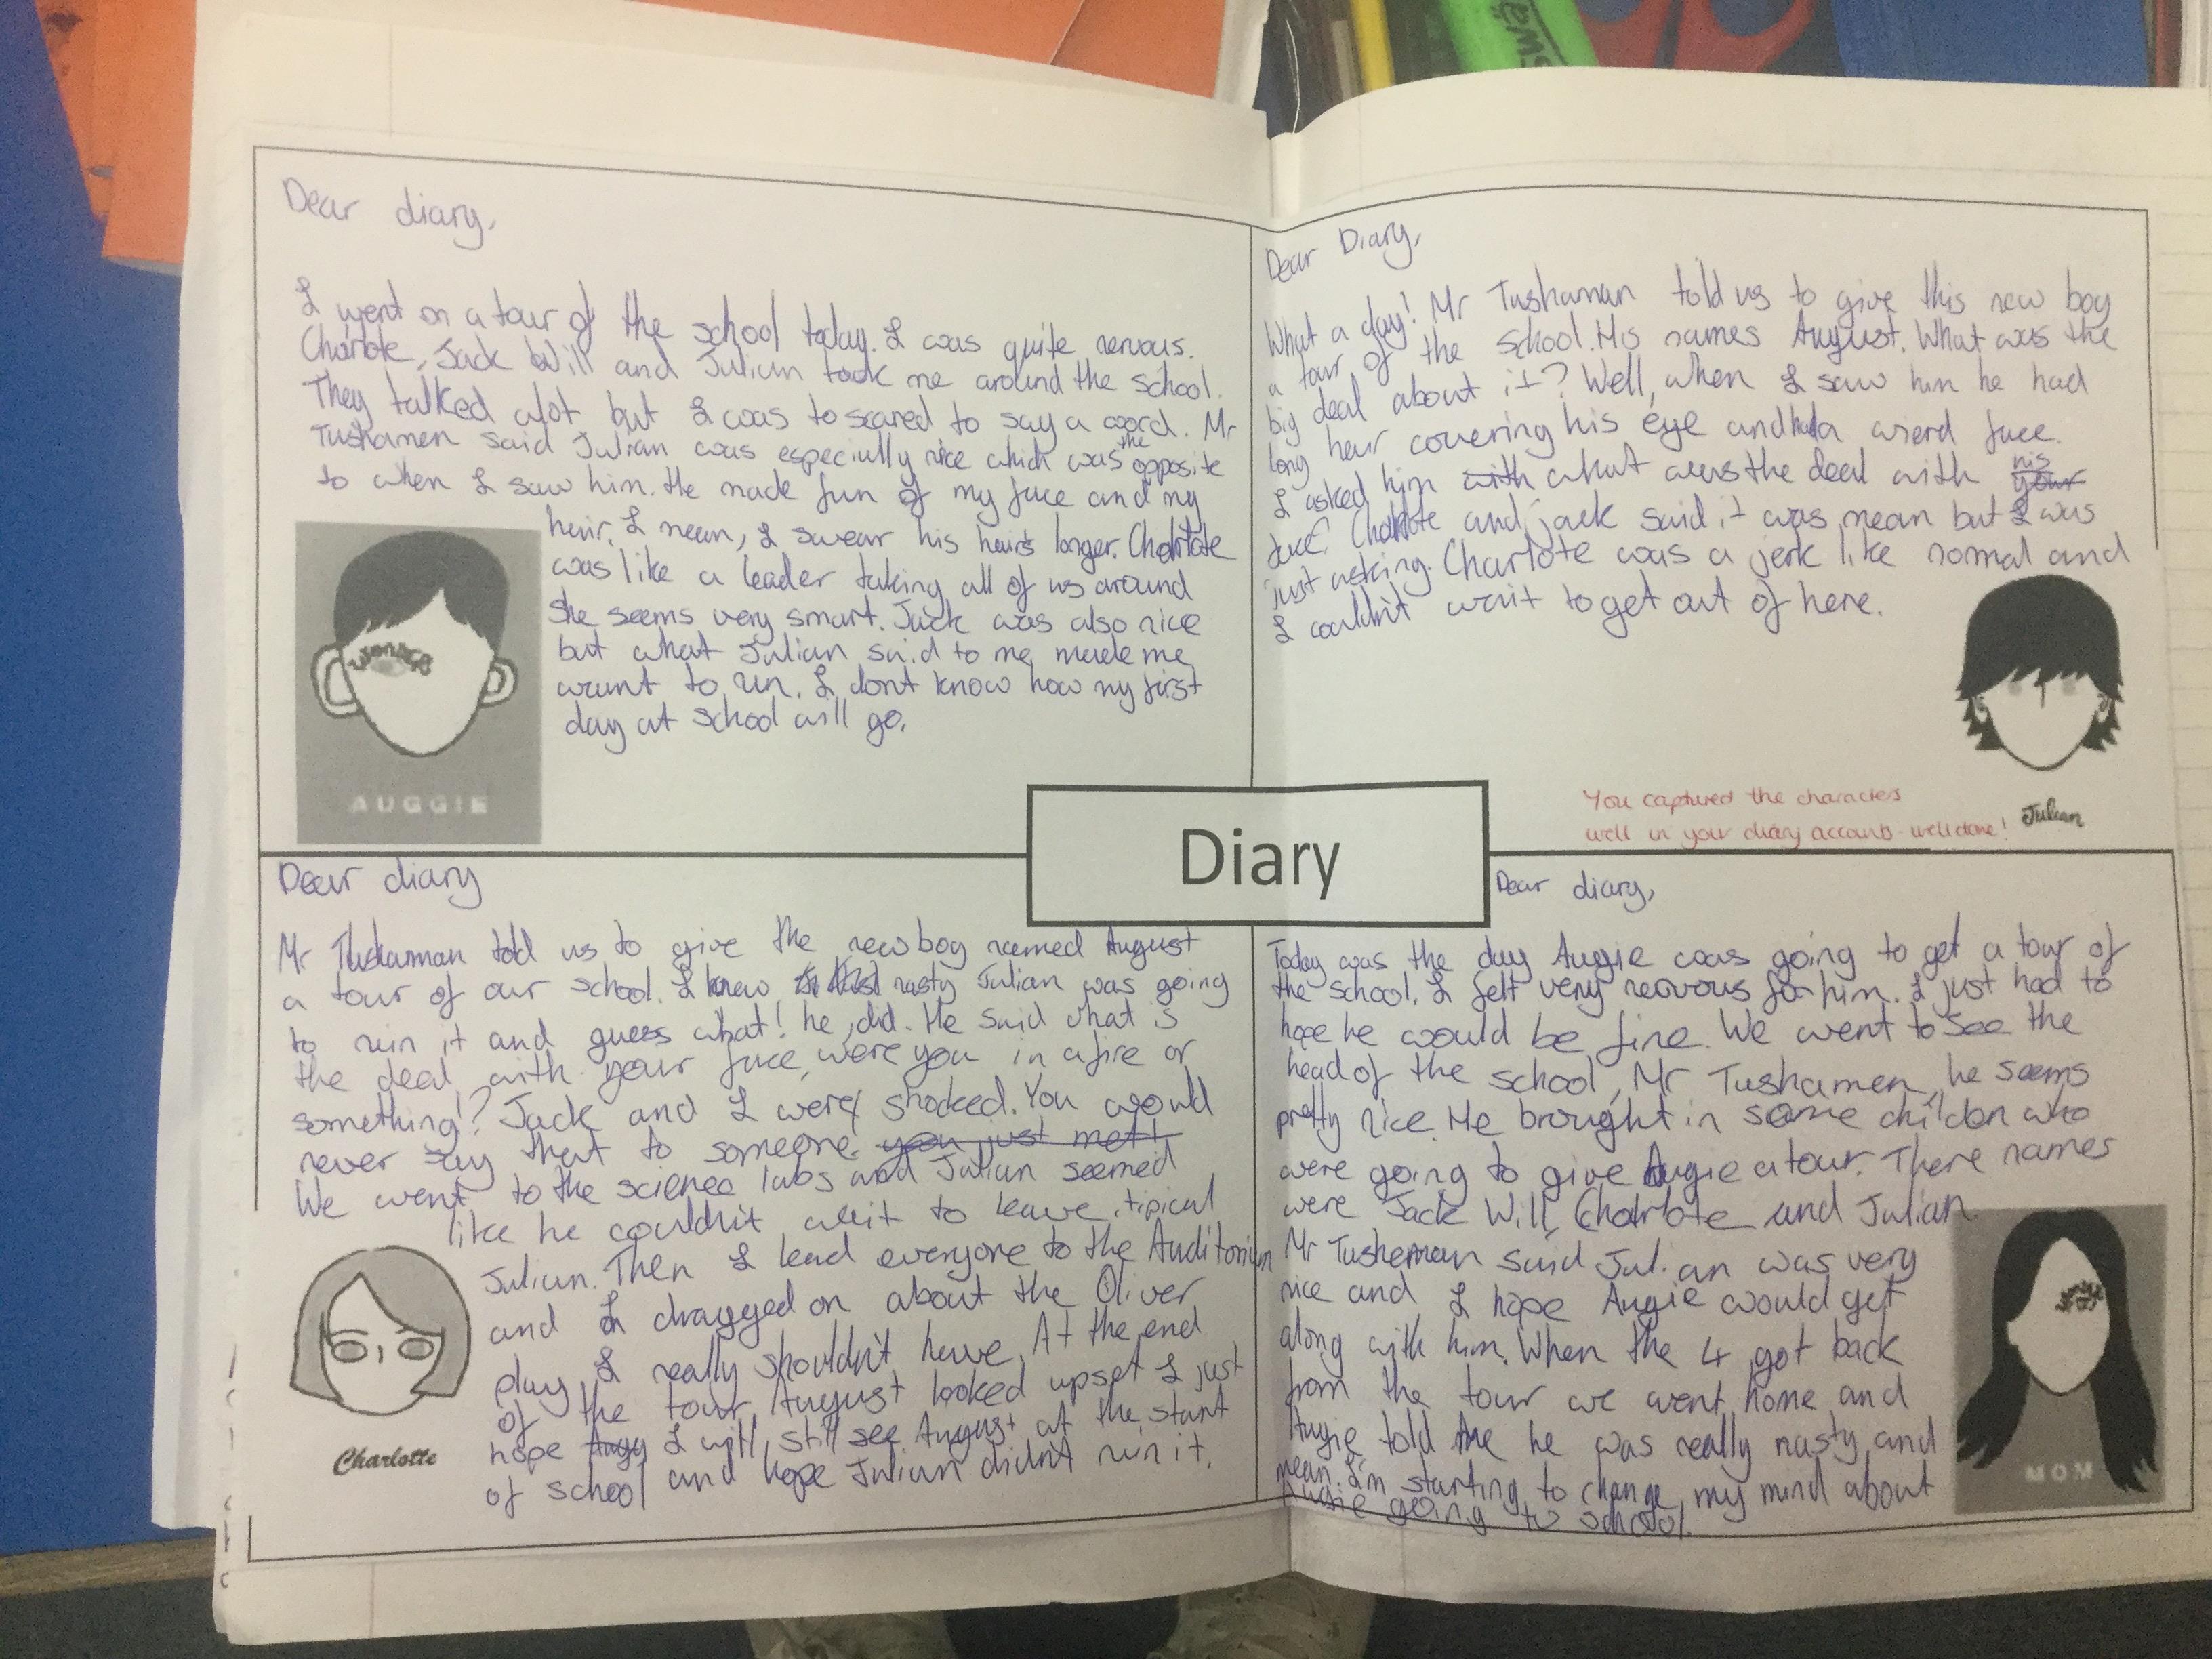 Dear diary,
I went on a tour of the school today. I was quite nervous.
Charlote, Jack Will and Julian took me around the school.
They talked alot but I was to scared to say a word. Mr
Tushamen said Julian was especially nice which was the opposite
to when I saw him. He made fun of my face and my
hair. I mean, I swear his hairs longer. Charlote
was like a leader taking all of us around
she seems very smart. Jack was also nice
but what Julian said to me made me
want to run. I don't know how my first
day at school will go.
AUGGIE
Dear Diary,
What a day! Mr Tushaman told us to give this new boy
a tour of the school. His names August. What was the
big deal about it? Well, when I saw him he had
long hair covering his eye and had a wierd face.
I asked him with what was the deal with his your
face. Charlote and jack said it was mean but I was
just asking. Charlote was a jerk like normal and
I couldn't wait to get out of here.
You captured the characters
well in your diary accounts - well done!
Julian
Diary
Dear diary
Mr Tushamman told us to give the new boy named August
a tour of our school. I knew nasty Julian was going
to ruin it and guess what! he did. He said what is
the deal with your face, were you in a fire or
something!? Jack and I were shocked. You would
never say that to someone. you just met!
We went to the science labs and Julian seemed
like he couldn't wait to leave, tipical
Julian. Then I lead everyone to the Auditorium
and I dragged on about the Oliver
play, I really shouldn't have. At the end
of the tour, August looked upset I just
hope Augy I will still see August at the start
of school and hope Julian didn't ruin it.
Charlotte
Dear diary,
Today was the day Augie was going to get a tour of
the school. I felt very nervous for him. I just had to
hope he would be fine. We went to see the
head of the school, Mr Tushamen, he seems
pretty nice. He brought in some childen who
were going to give Augie a tour. There names
were Jack Will, Charlote and Julian.
Mr Tusheman said Julian was very
nice and I hope Augie would get
along with him. When the 4 got back
from the tour we went home and
Augie told me he was really nasty and
mean. I'm starting to change my mind about
Augie going to school.
MOM